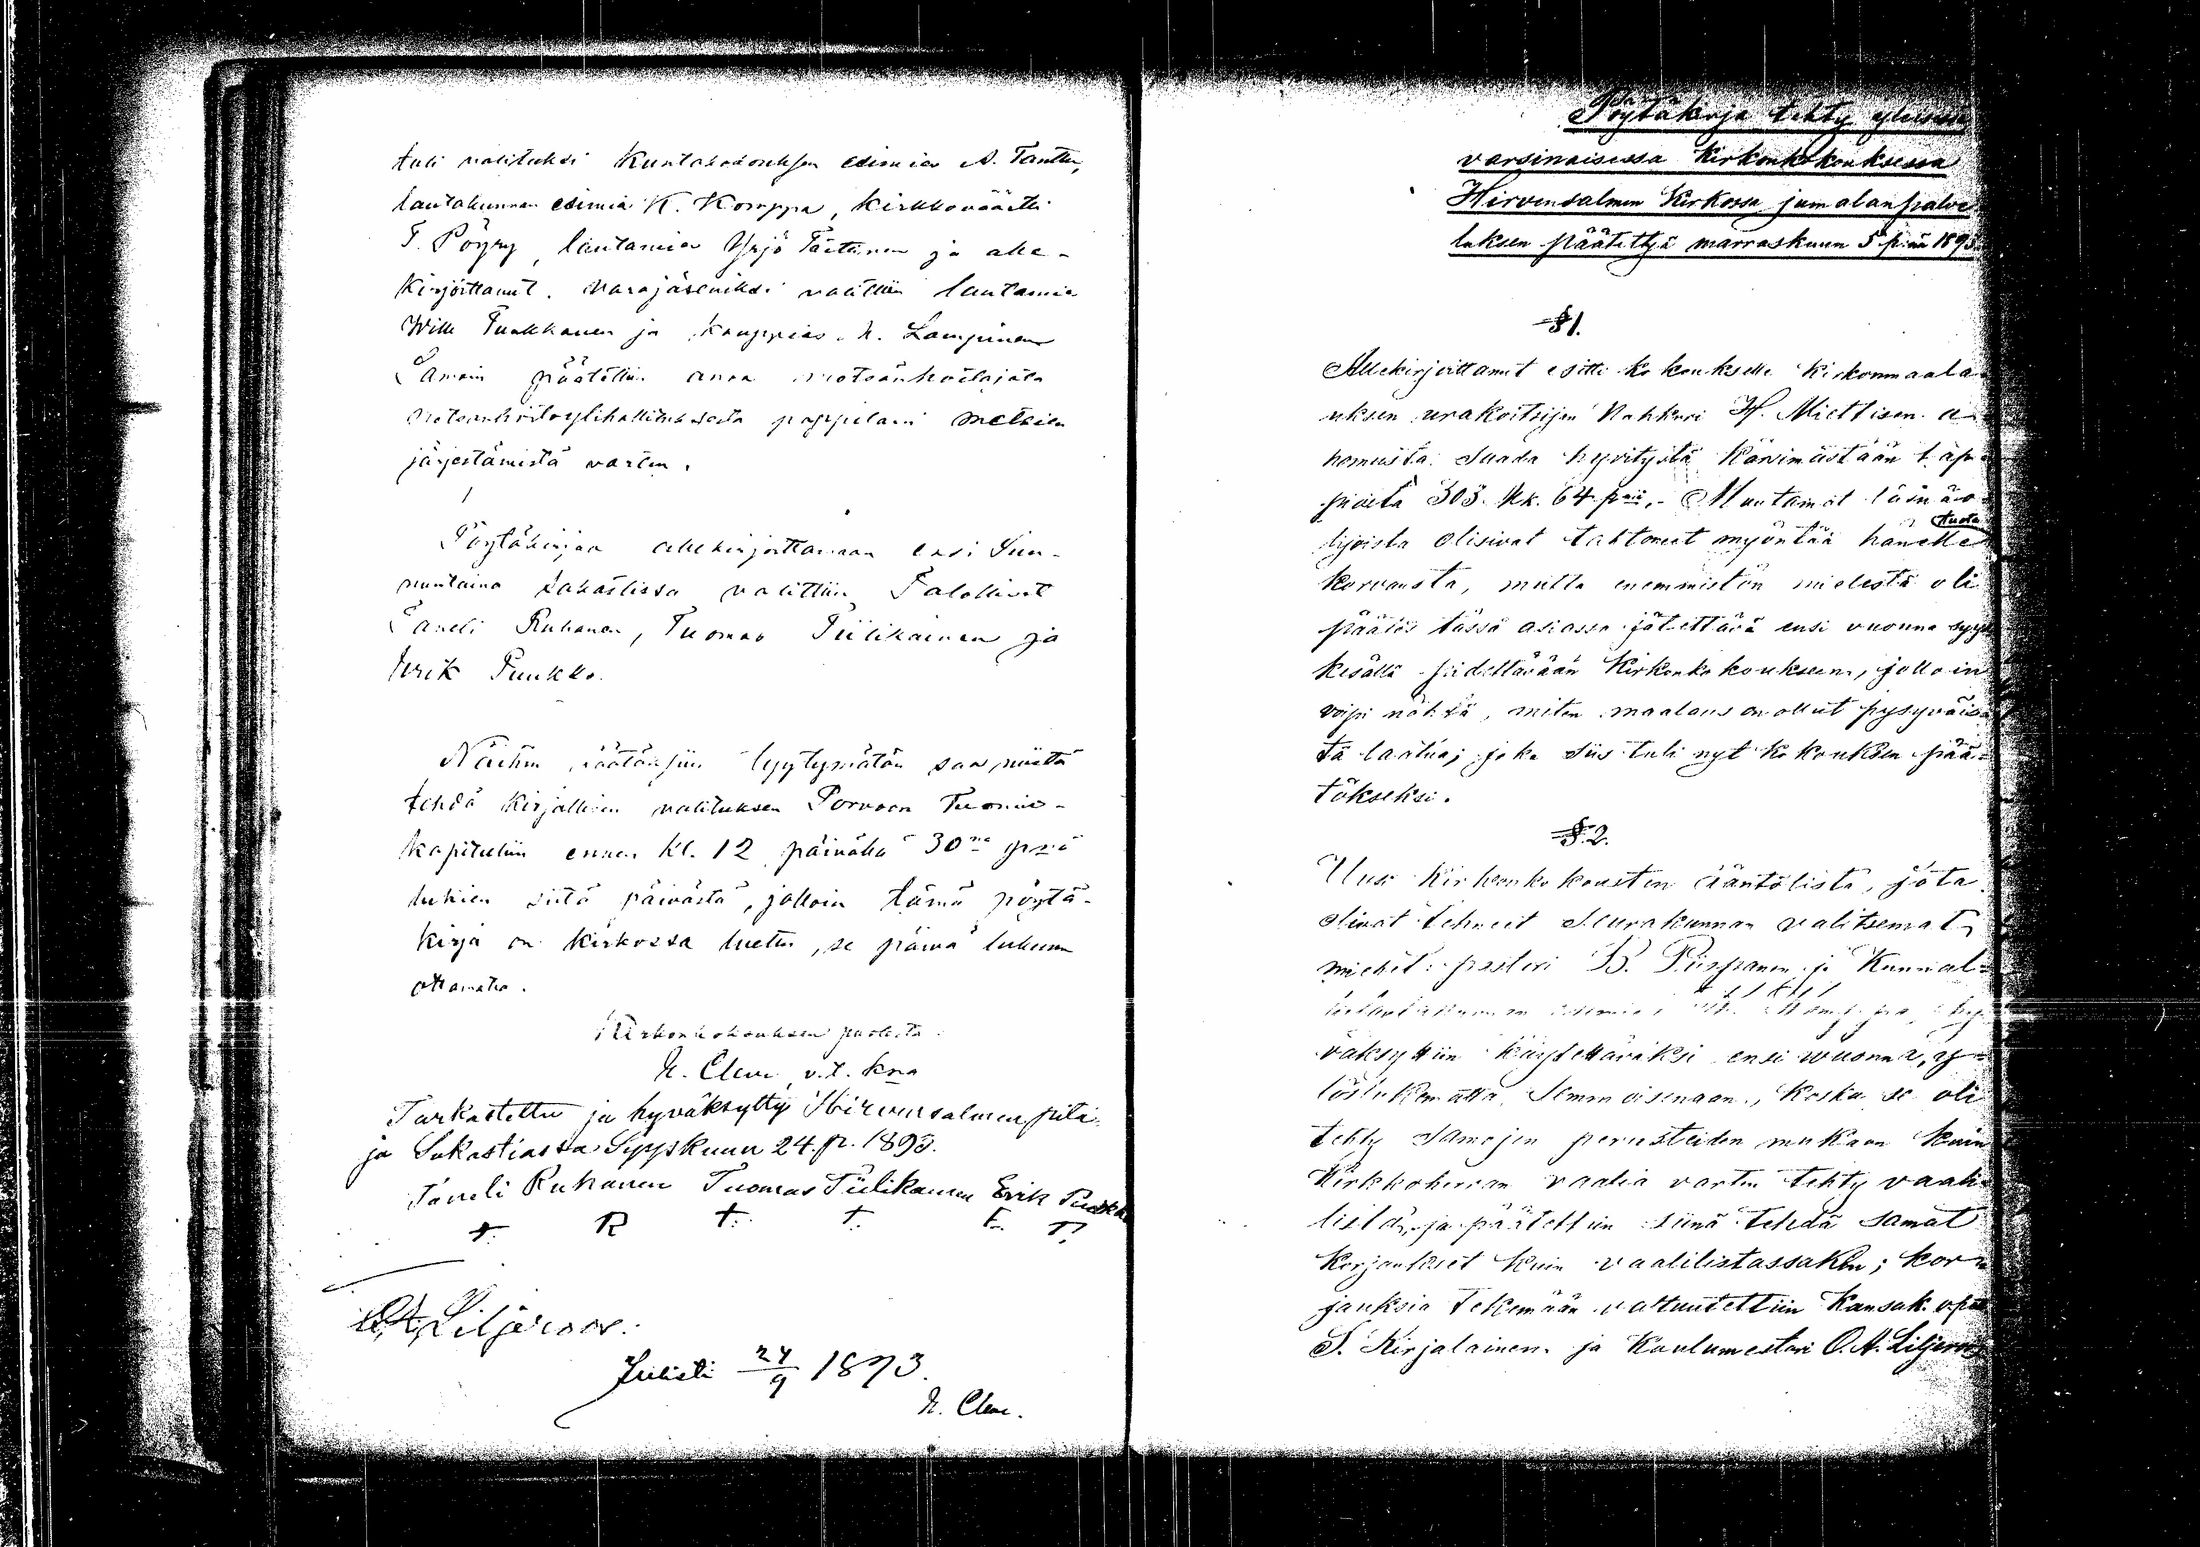 tuli valituksi Kuntakokouksen esimies A. Tanttu,
lautakunnan esimies K. Komppa, kirkkoväärtti
T. Pöyry, lautamies Yrjö Täetinen ja alle-
kirjoittanut. Varajäseniksi valittiin lautamies
Wille Puukkonen ja kauppias N. Lampinen
Samoin päätettiin anoa metsänhoitajata
metsänhoitoylihallitukselta pappilain metsien
järjestämistä varten.
Pöytäkirjaa allekirjoittamaan ensi Sun-
nuntaina Sakastissa valittiin Talolliset
Taneli Ruhanen, Tuomas Tiilikainen ja
Erik Puukko.
Näihin päätöksiin tyytymätön saa niistä
tehdä kirjallisen valituksen Porvoon Tuomio-
kapituliin ennen kl. 12 päivällä 30nä pnä
lukien siitä päivästä, jolloin tämä pöytä-
kirja on kirkossa luettu, se päivä lukuun
ottamatta.
Kirkonkokouksen puolesta
N. Cleve, v.t. kra
Tarkastettu ja hyväksytty Hirvensalmen pitä-
jä Sakastiassa Syyskuun 24. p. 1893.
Taneli Ruhanen Tuomas Tiilikainen Erik Puukko
T. R T. T. E. P.
O. A. Liljeroos.
Julisti 24/9 1893.
N. Cleve.
Pöytäkirja tehty yleisessä
varsinaisessa Kirkonkokouksessa
Hirvensalmen Kirkossa jumalanpalve-
luksen päätettyä marraskuun 5 p:nä 1893.
§ 1.
Allekirjoittanut esitti kokoukselle Kirkonmaala-
uksen urakoitsijan Nahkuri H. Miettisen a-
nomusta saada hyvitystä kärsimästään tap-
piosta 303 Mk. 64 p:iä. Muutamat läsnäo-
lijoista olisivat tahtoneet myöntää hänelle tuota
korvausta, mutta enemmistön mielestä oli
päätös tässä asiassa jätettävä ensi vuonna syys
kesällä pidettävään Kirkonkokoukseen, jolloin
voipi nähdä, miten maalaus on ollut pysyväis-
tä laatua; joka siis tuli nyt kokouksen pää-
tökseksi.
§ 2.
Uusi Kirkonkokousten ääntölista, jota
olivat tehneet Seurakunnan valitsemat
miehet: pastori B. Piispanen ja Kunnal-
lislautakunnan esimies K. Komppa, hy-
väksyttiin käytettäväksi ensi wuonna, y-
löslukematta, semmoisenaan, koska se oli
tehty samojen perusteiden mukaan kuin
Kirkkoherran vaalia varten tehty vaali-
lista, ja päätettiin siinä tehdä samat
korjaukset kuin vaalilistassakin; kor-
jauksia tekemään valtuutettiin Kansak. op.
S. Kirjalainen ja Koulumestari O. A. Liljeroos